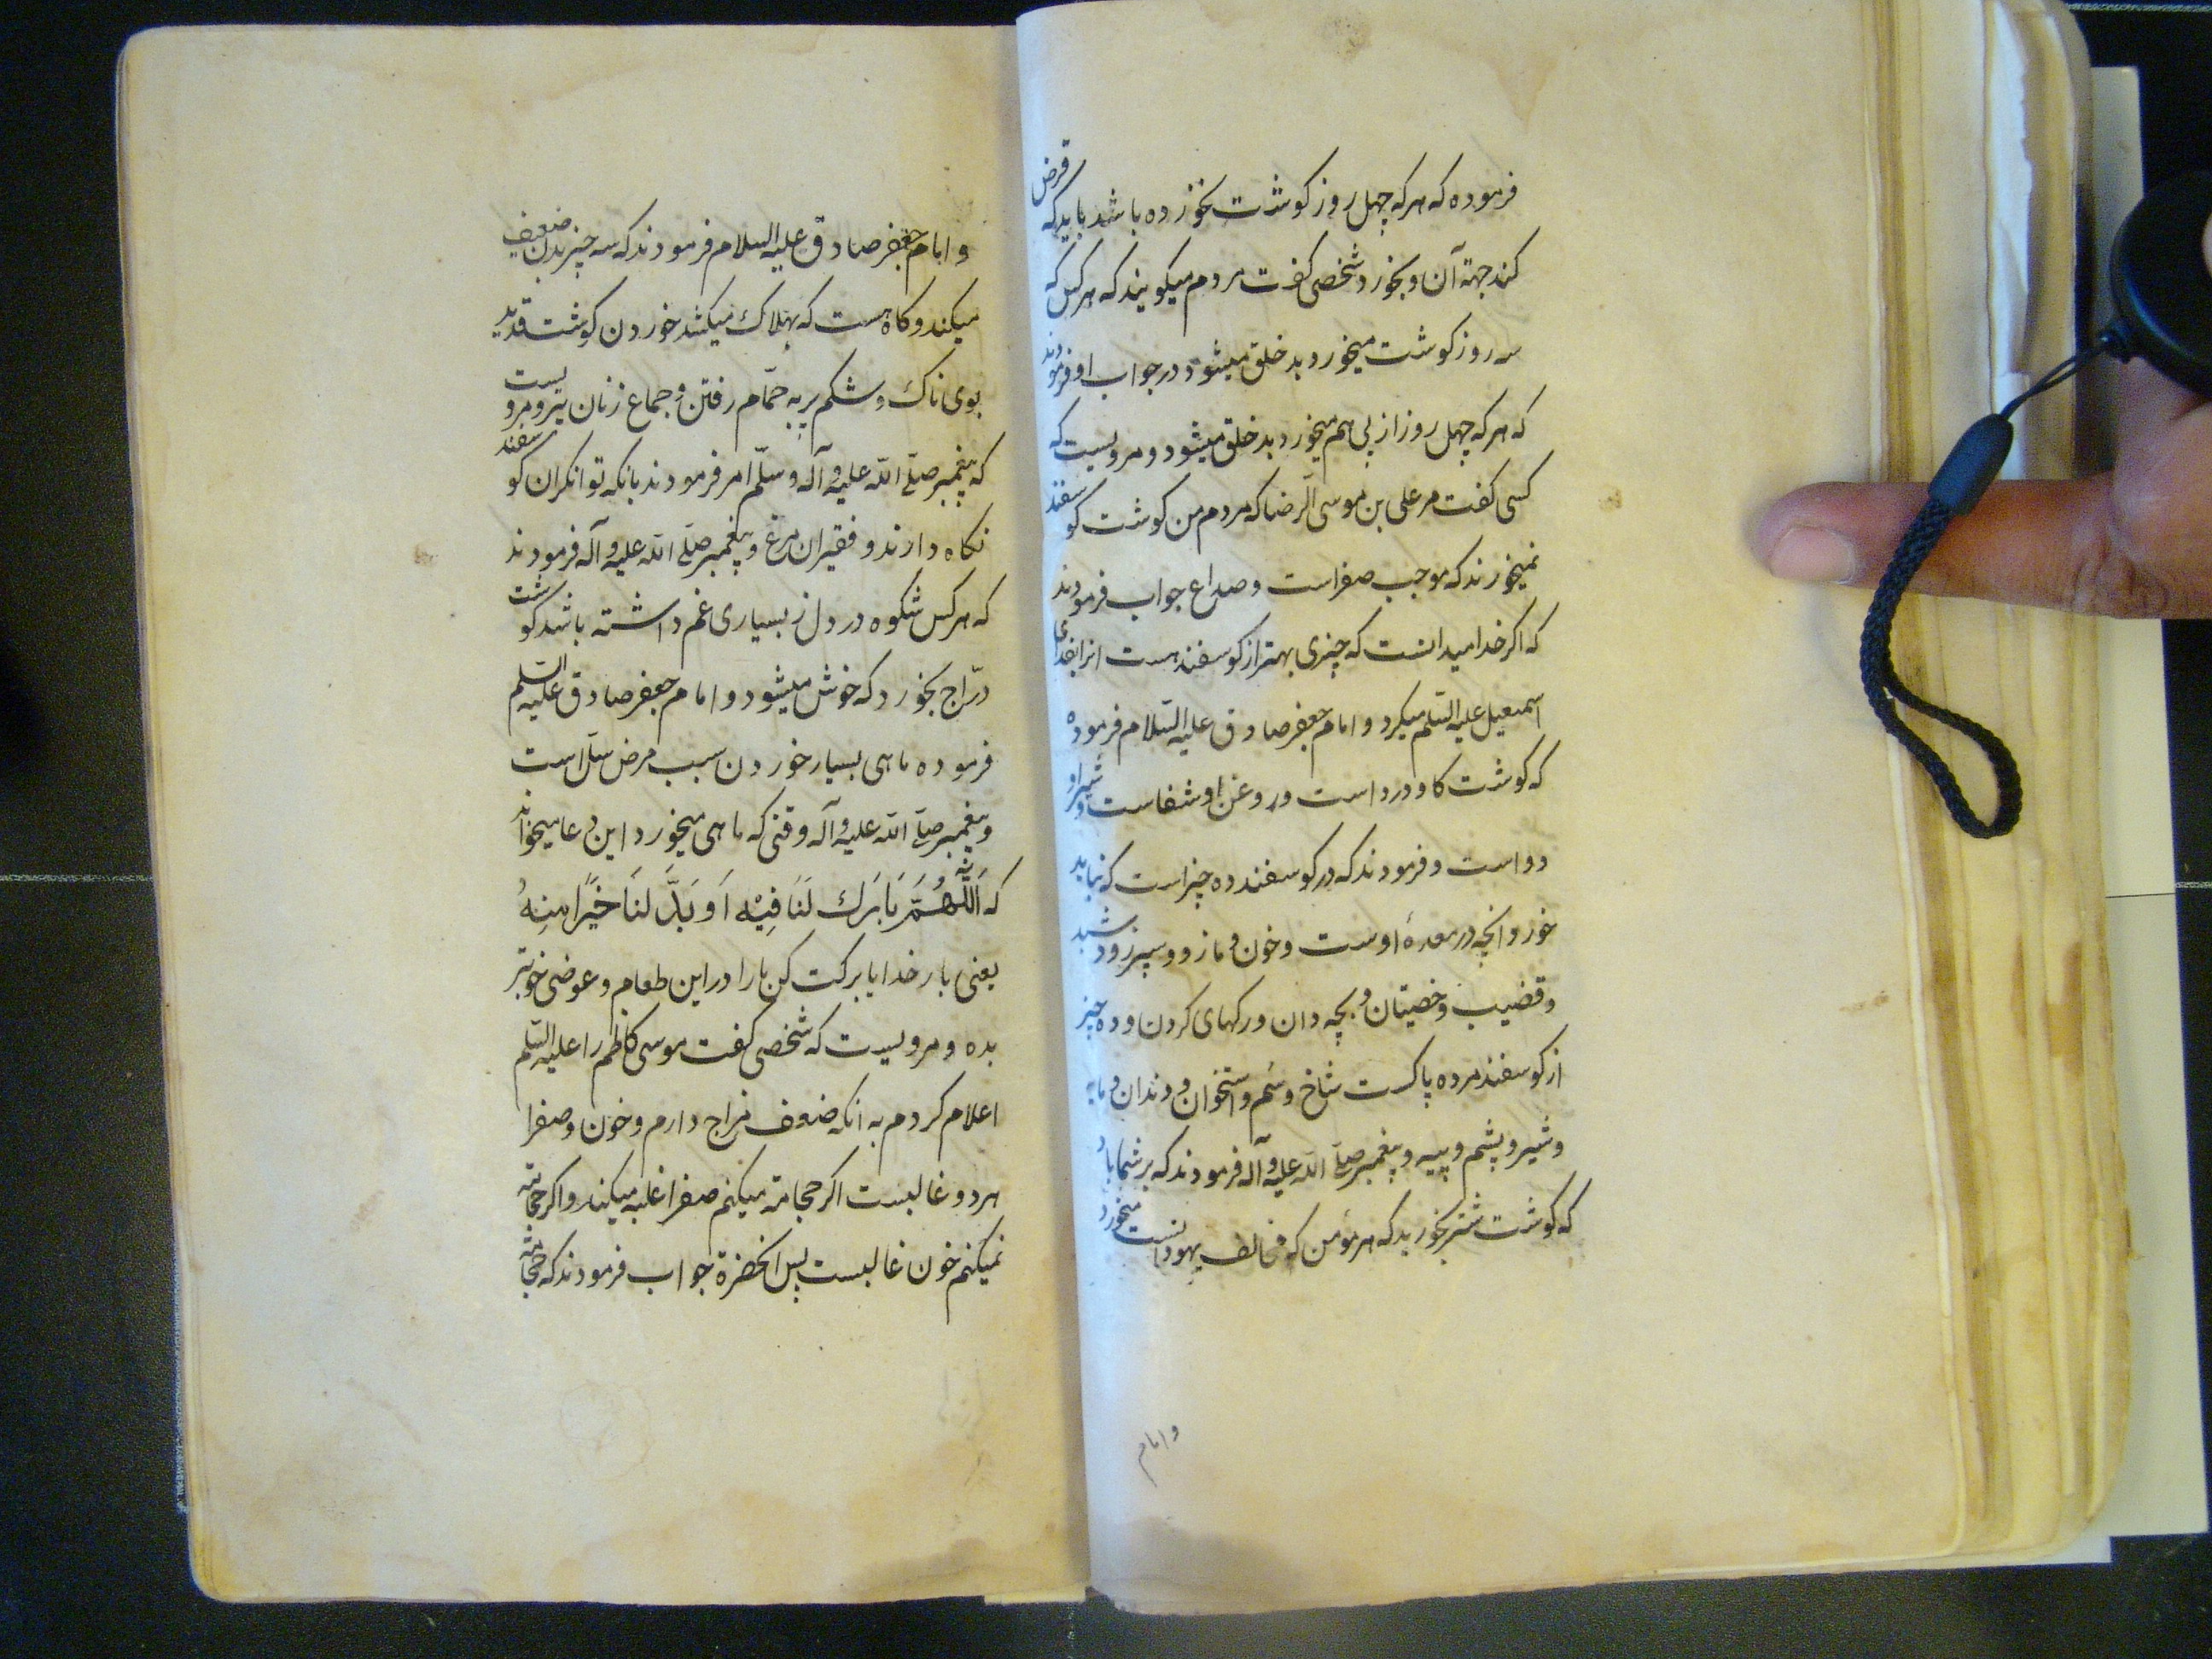 فرموده که هر که چهل روز کوشت نخورده باشد باید که قرض
کند جهة آن و بخورد شخصی کفت مردم میکویند که هر کس که
سه روز کوشت میخورد بد خلق میشود در جواب او فرمودند
که هر که چهل روز از پی هم میخورد بد خلق میشود و مرویست که
کسی کفت مر علی بن موسی الرضا که مردم من کوشت کوسفند
نمیخورند که موجب صفراست و صداع جواب فرمودند
که اکر خدا میدانست که چیزی بهتر از کوسفند هست انرا فدای
اسمعیل علیه السّلم میکرد و امام جعفر صادق علیه السّلام فرموده
که کوشت کاو درد است و روغن او شفاست و شیر او
دوا است و فرمودند که در کوسفند ده چیز است که نباید
خورد آنچه در معدۀ اوست و خون و مازو و سپرز و د
و قضیب و خصیتان و بچه دان و رکهای کردن و ده چیز
از کوسفند مرده پاکست شاخ و سُم و استخوان و دندان و
و شیر و پشم و پیه و پیغمبر صلّی الله علیه و آله فرمودند که بر شما باد
که کوشت شتر بخورید که هر مؤمن که مخالف یهود انست میخورد
و امام
و امام جعفر صادق علیه السلام فرمودند که سه چیز بدن ضعیف
میکند و کاه هست که بهلاک میکشد خوردن کوشت قدید
بوی ناک و شکم پر به حمّام رفتن و جماع زنان پیر و مرویست
که پیغمبر صلّی الله علیه و آله و سلّم امر فرمودند بانکه توانکران کوسفند
نکاه دارند و فقیران مرغ و پیغمبر صلّی الله علیه و آله فرمودند
که هر کس شکوه در دل از بسیاری غم داشته باشد کوشت
درّاج بخورد که خوش میشود و امام جعفر صادق علیه السّلم
فرموده ماهی بسیار خوردن سبب مرض سلّ است
و پیغمبر صلّی الله علیه و آله وقتی که ماهی میخورد این دعا میخواند
که اَللّٰهُمَّ بَارَك لَنَا فِيْه اَو بَدَّ لنَا خَيْرًا مِنهُ
یعنی بار خدایا برکت کن ما را در این طعام و عوضی خوبتر
بده و مرویست که شخصی کفت موسی کاظم را علیه السّلم
اعلام کردم به انکه ضعف مزاج دارم و خون و صفرا
هر دو غالبست اکر حجامة میکنم صفرا غلبه میکند و اکر حجامة
نمیکنم خون غالبست پس انحضرة جواب فرمودند که حجامة